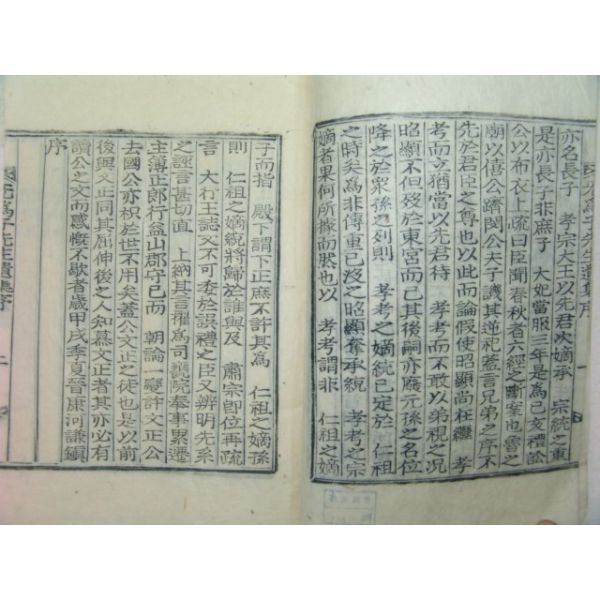 亦名長子 孝宗大王以先君次嫡承 宗統之重
是亦長子非庶子 大妃當服三年是爲己亥禮訟
公以布衣上疏曰臣聞春秋者六經之斷案也魯之
廟以僖公躋閔公夫子譏其逆祀蓋言兄弟之序不
先於君臣之尊也以此而論假使昭顯尚在繼 孝
考而亡猶當以先君待 孝考而不敢以弟視之況
昭顯不但歿於東宮而已其後嗣亦廢元孫之名位
降之於衆孫之列則 孝考之嫡統已定於 仁祖
之時矣爲非傳重已沒之昭顯奪承統 孝考之宗
嫡者果何所據而然也以 孝考謂非 仁祖之嫡
子而指 殿下謂下正庶不許其爲 仁祖之嫡孫
則 仁祖之嫡統將歸於誰與及 肅宗卽位再疏
言 大行王誌文不可委於誤禮之臣又辨明先系
之誣言甚切直 上納其言擢爲司饔院奉事累遷
主簿正郎行益山郡守已而 朝論一變許文正公
去國公亦枳於世不用矣蓋公文正之徒也是以前
後與文正同其屈伸後之人知慕文正者其亦必有
讀公之文而感慨不歇者歲甲戌季夏晉康河謙鎭
序